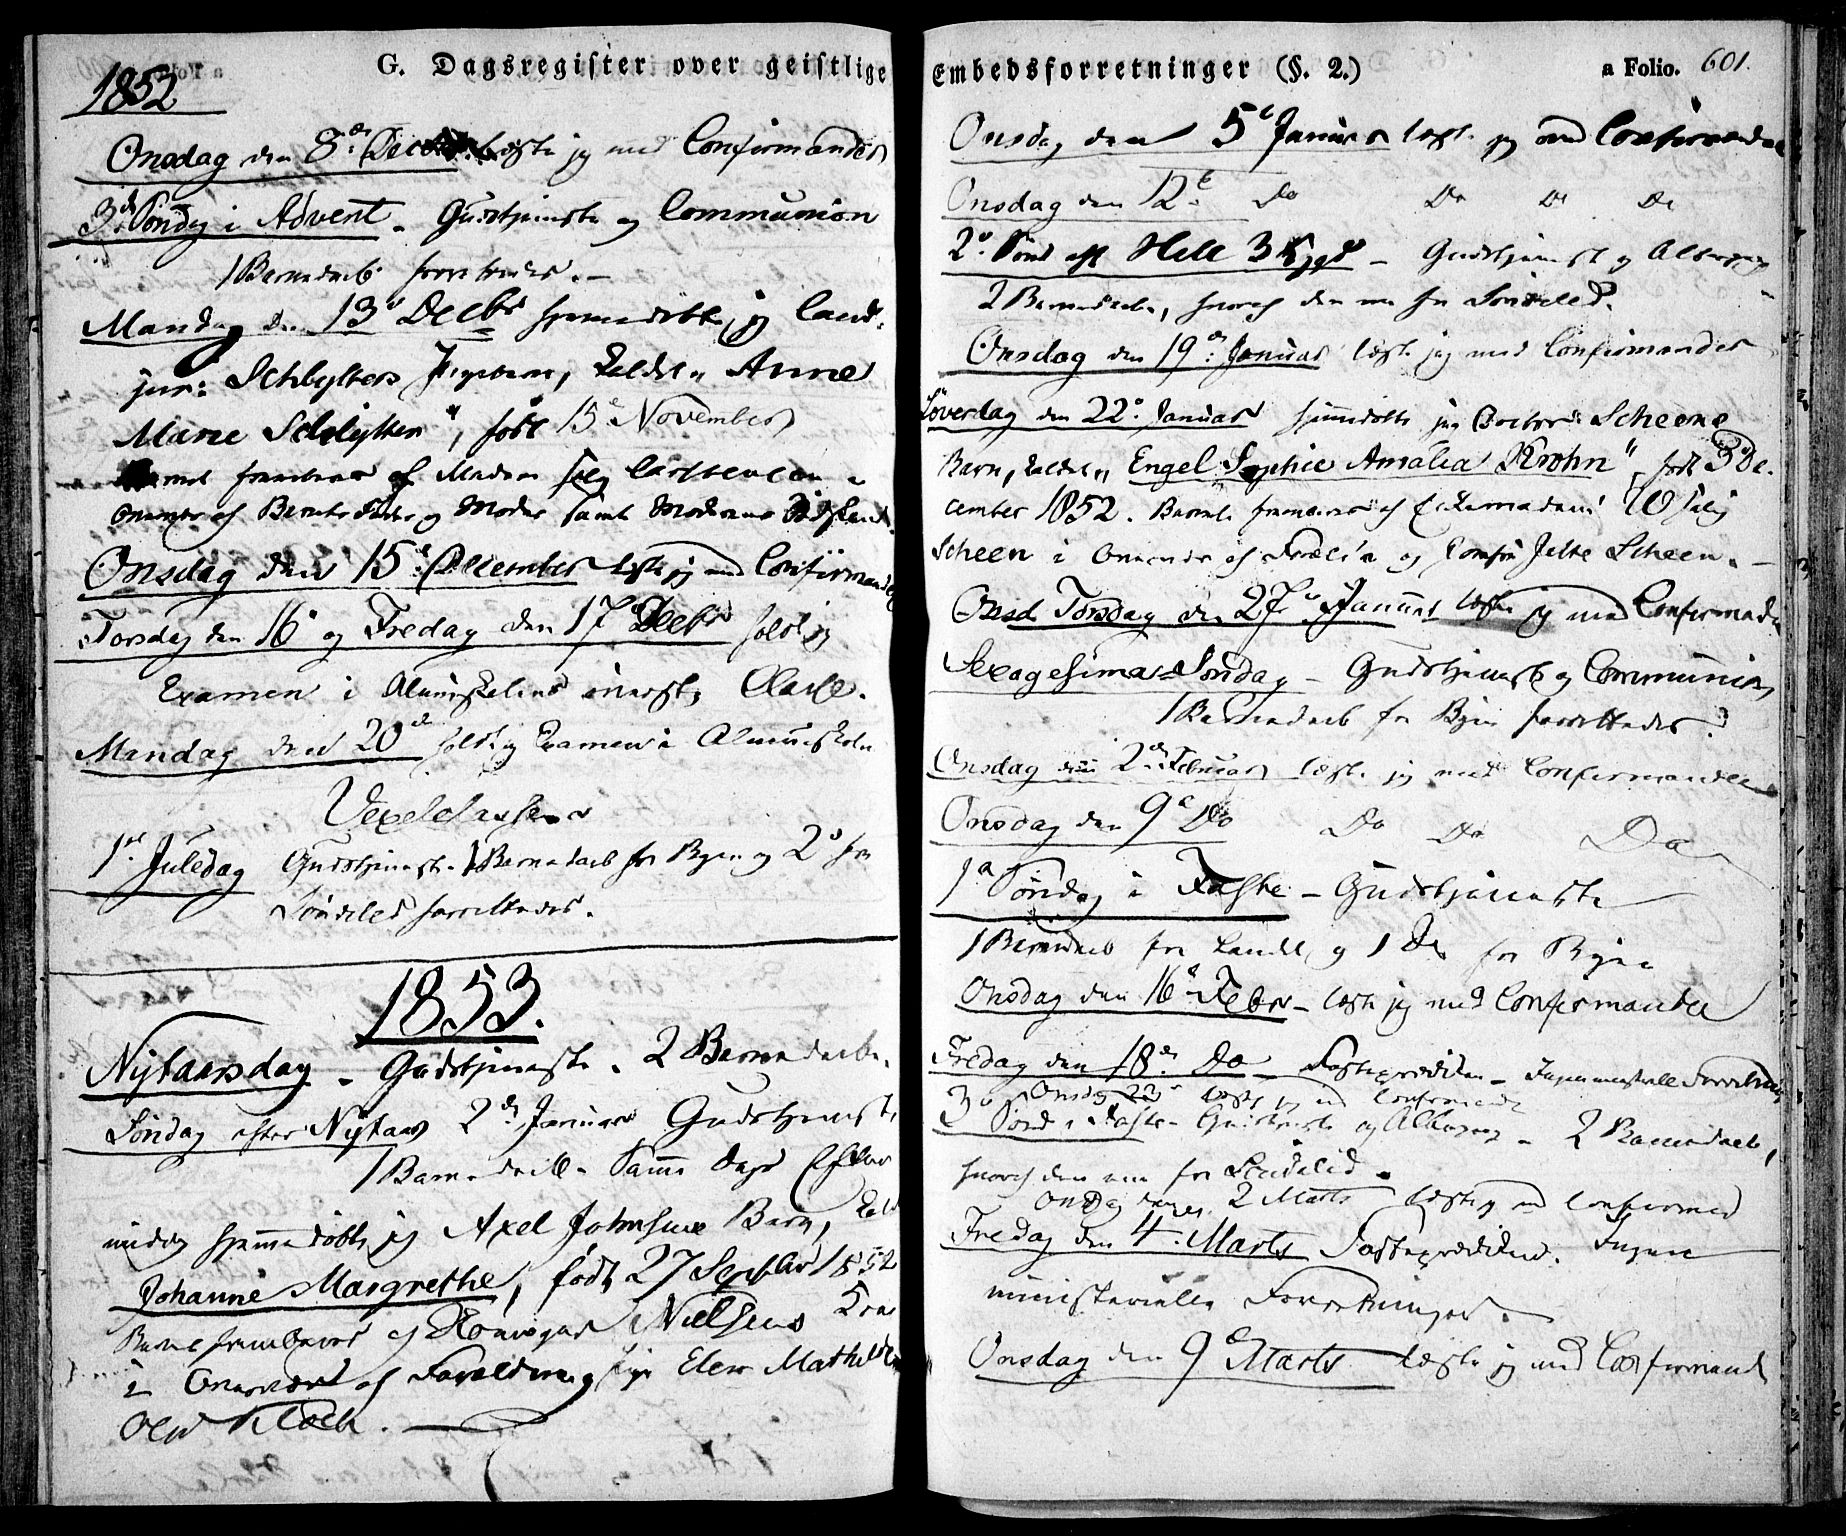 G. Dagsregister over geistlige
1852
Onsdag den 8de læste jeg med Confirmander
3de Søndag i Advent - Gudstjeneste og Communion
1 Barnedaab forrettedes. -
Mandag den 13de Decbr hjemmedøbte jg Cand.
jur: Schlytters Pigebarn, kaldet „Anne
Marie Schlytter", født 15de November
af Madam
af Barnets Fader og Moder samt Moderens
Onsdag den 15de December læste jeg med Confirmander
Torsdag den 16de og Fredag den 17de Decbr holdt jg
Examen i Almueskolens Classe.
Mandag den 20de holdt jg Examen i Almueskolen
1ste Juledag Gudstjeneste 1 Barnedaab for Byen og 2de for
Søndeled forrettedes.
1853.
Nytaarsdag - Gudstjeneste. 2 Barnedaabe.
Søndag efter Nytaar 2den Januar Gudstjeneste,
1 Barnedaab - Samme Dags Efter
middag hjemmedøbte jg Axel Johnsens Barn, kald
Johanne Margrethe, født 27 Septbr 1852
af Nielsens Kone
i Overvær af Forældrene og Pige Elen Mathilde
Klock.
Embedsforretninger (§. 2.)
a Folio. 601.
Onsdag den 5te Januar læste jg med Confirmander
Onsdag den 12te Do Do Do Do
2den Sønd eft Hell 3 Kgs - Gudstjenest og Altergang
2 Barnedaabe, hvoraf den ene for Søndeled.
Onsdag den 19de Januar læste jeg med Confirmander
Løverdag den 22de Januar hjemmedøbte jeg Scheens
Barn, kaldet „Engel Sophie Amalia Krohn", født 3de De-
cember 1852. Barnet frembares af
Scheen i Overvær af Forældre og Jomfru Scheen. -
Onsd Torsdag den 27de Januar læste jg med Confirmander
Sexagesima Søndag - Gudstjeneste og Communion
1 Barnedaab for Byen forrettedes.
Onsdag den 2den Februar læste jg med Confirmander
Onsdag den 9de Do Do Do Do
1ste Søndag i Faste - Gudstjeneste
1 Barnedaab for Landet og 1 Do for Byen
Onsdag den 16de Febr - læste jeg med Confirmander
Fredag den 18de Do - Fasteprædiken - Ingen ministerielle Forretninger
Onsdag 23de læste jg med Confirmander
3de Sønd i Faste - Gudstjeneste og Altergang - 2 Barnedaabe,
hvoraf den ene for Søndeled.
Onsdag den 2 Marts læste jg med Confirmand
Fredag den 4 Marts Fasteprædiken. Ingen
ministerielle Forretninger.
Onsdag den 9de Marts læste jg med Confirmand